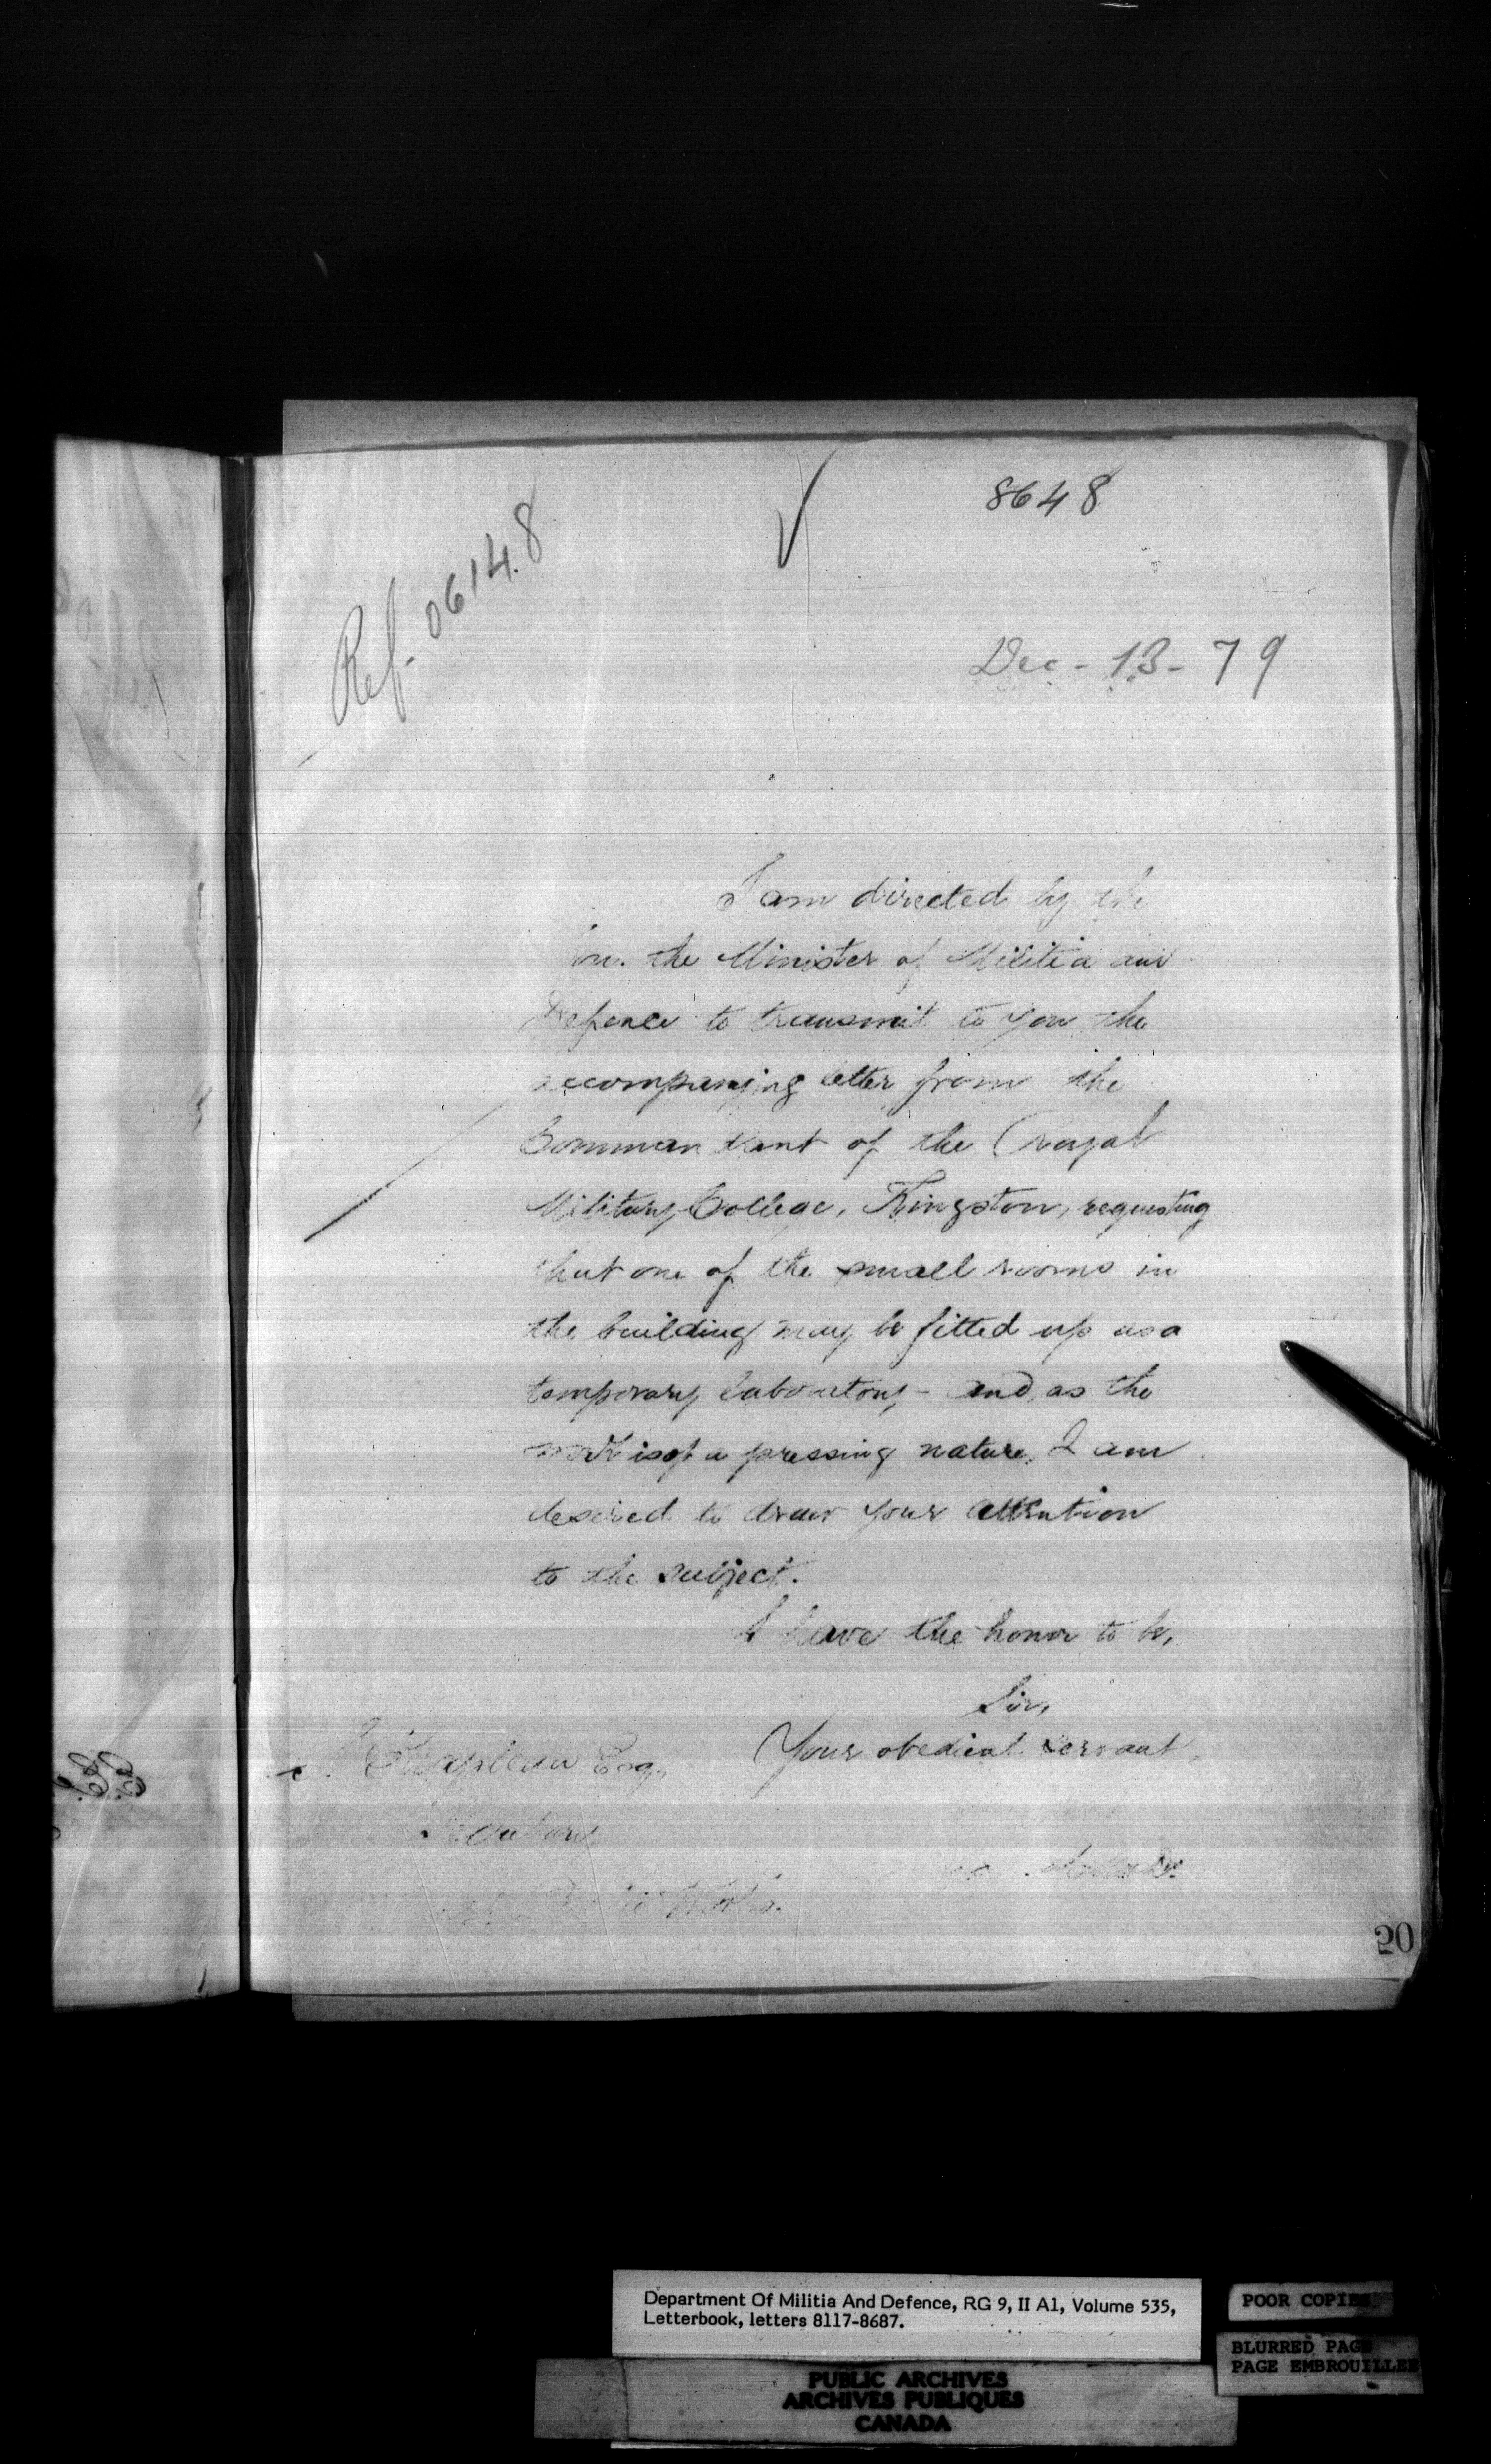 8648
Ref. 06148
Dec - 13 - 79
I am directed by the
on. the Minister of Militia and
Defence to transmit to you the
accompanying letter from the
Commandant of the Royal
Military College, Kingston, requesting
that one of the small rooms in
the building may be fitted up as a
temporary laboratory - and, as the
work is of a pressing nature, I am
desired to draw your attention
to the subject.
I have the honor to be,
Sir,
Your obedient servant,
Chapleau Esq.,
Secretary
Works.
50
Department Of Militia And Defence, RG 9, II A1, Volume 535,
Letterbook, letters 8117-8687.
POOR COPIES
BLURRED PAGE
PAGE EMBROUILLEE
PUBLIC ARCHIVES
ARCHIVES PUBLIQUES
CANADA